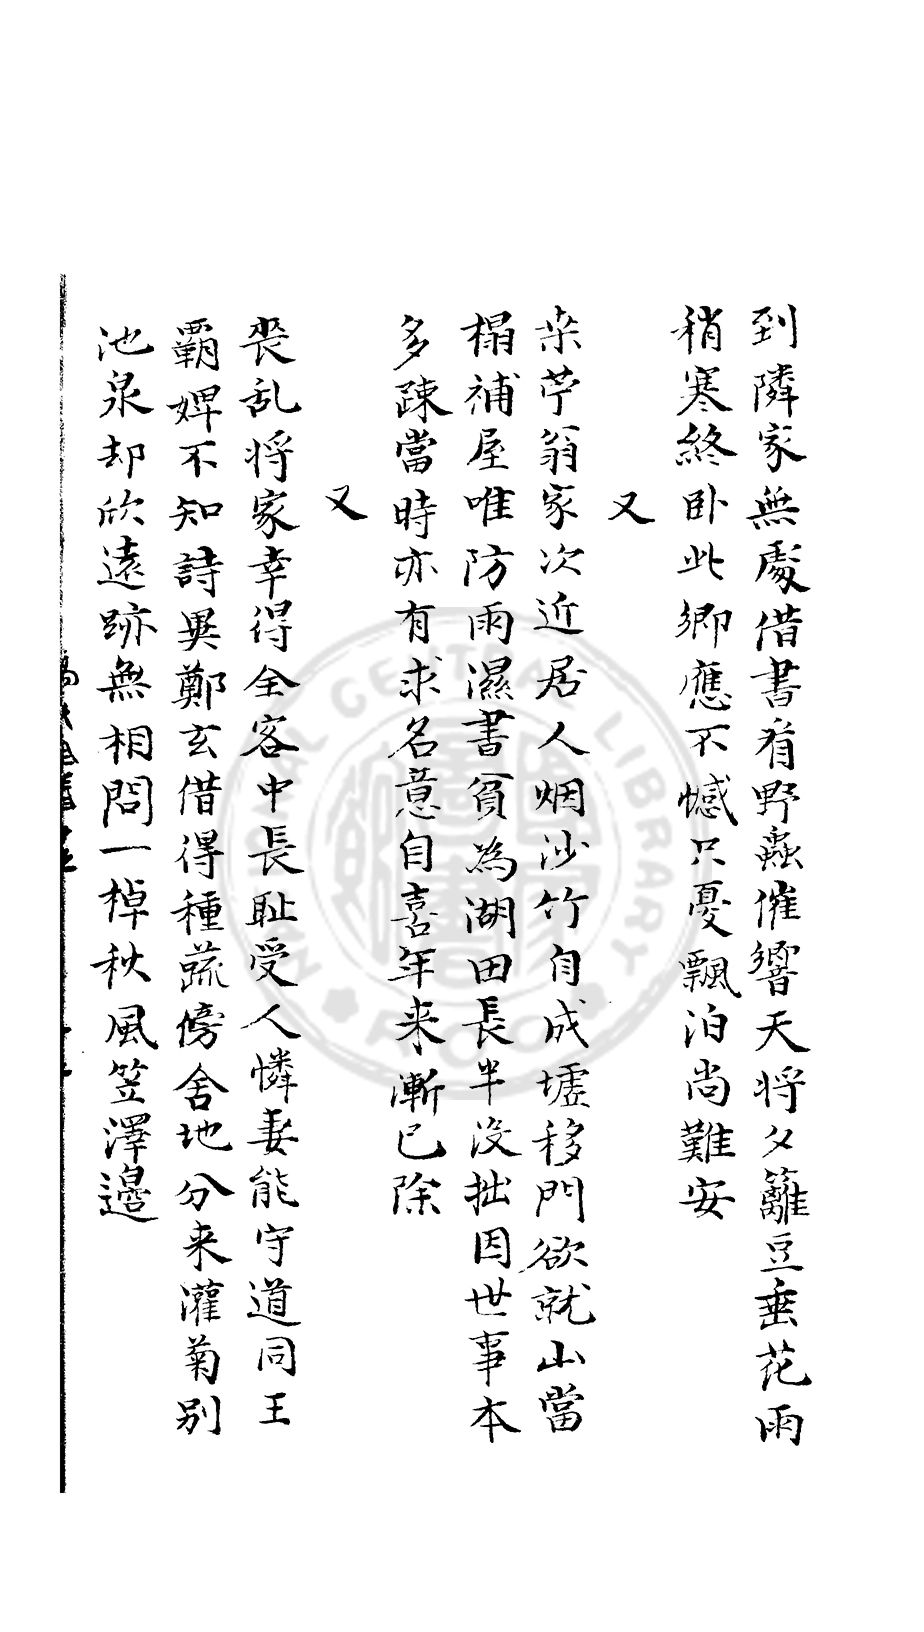 到隣家無處借書看野蟲催響天将夕籬豆垂花雨
稍寒終卧此鄉應不憾只憂飄泊尚難安
又
栄苧翁家次近居人烟沙竹自成墟移門欲就山當
榻補屋唯防雨濕書貧為湖田長半没拙因世事本
多疎當時亦有求名意自喜年来漸已除
又
喪乱将家幸得全客中長耻受人憐妻能守道同王
霸婢不知詩異鄭玄借得種蔬傍舍地分来灌菊別
池泉却欣遠跡無相問一棹秋風笠澤邊
NATIONAL CENTRAL LIBRARY